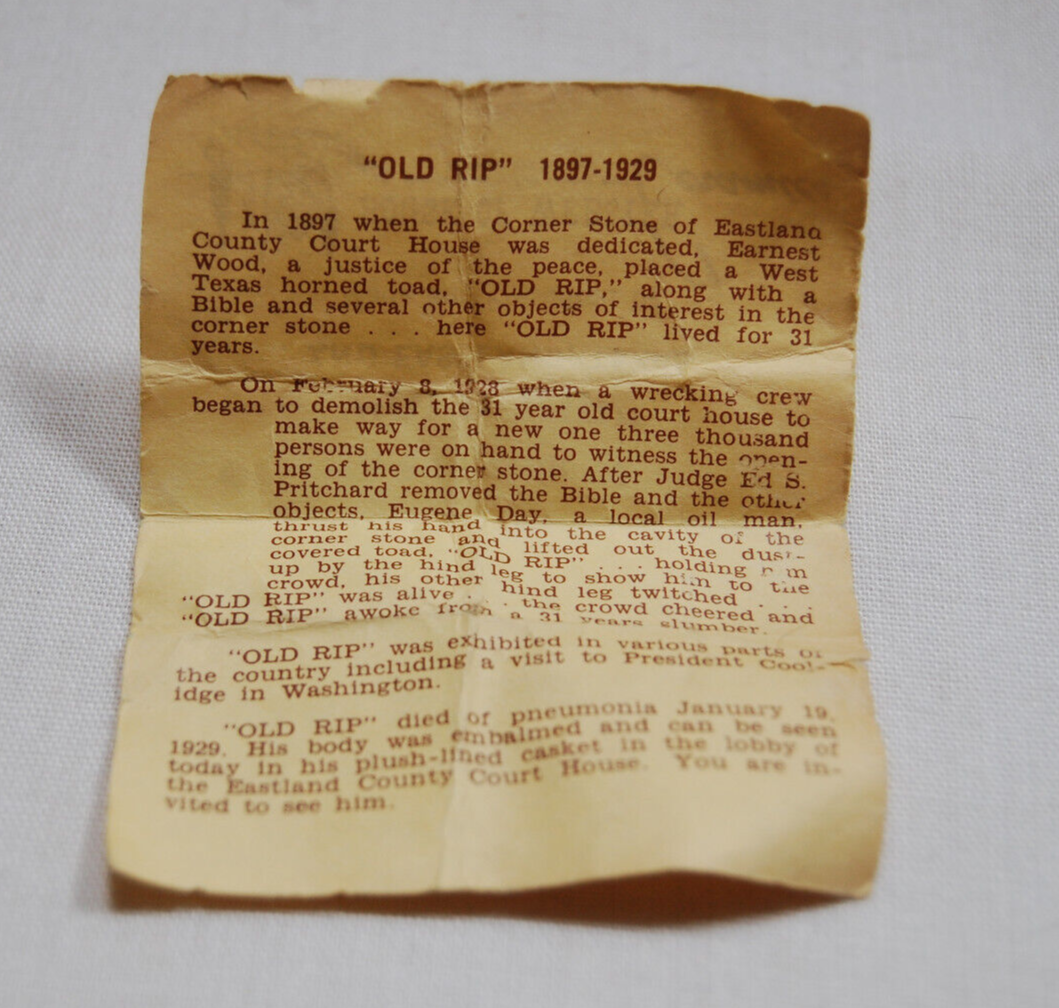 "OLD RIP" 1897-1929
In 1897 when the Corner Stone of Eastland
County Court House was dedicated, Earnest
Wood, a justice of the peace, placed a West
Texas horned toad, "OLD RIP," along with a
Bible and several other objects of interest in the
corner stone . . . here "OLD RIP" lived for 31
years.
On February 8, 1928 when a wrecking crew
began to demolish the 31 year old court house to
make way for a new one three thousand
persons were on hand to witness the open-
ing of the corner stone. After Judge Ed S.
Pritchard removed the Bible and the other
objects, Eugene Day, a local oil man,
thrust his hand into the cavity of the
corner stone and lifted out the dust-
covered toad, "OLD RIP" . . . holding him
up by the hind leg to show him to the
crowd, his other hind leg twitched . . .
"OLD RIP" was alive . . . the crowd cheered and
"OLD RIP" awoke from a 31 years slumber.
"OLD RIP" was exhibited in various parts of
the country including a visit to President Cool-
idge in Washington.
"OLD RIP" died of pneumonia January 19,
1929. His body was embalmed and can be seen
today in his plush-lined casket in the lobby of
the Eastland County Court House. You are in-
vited to see him.